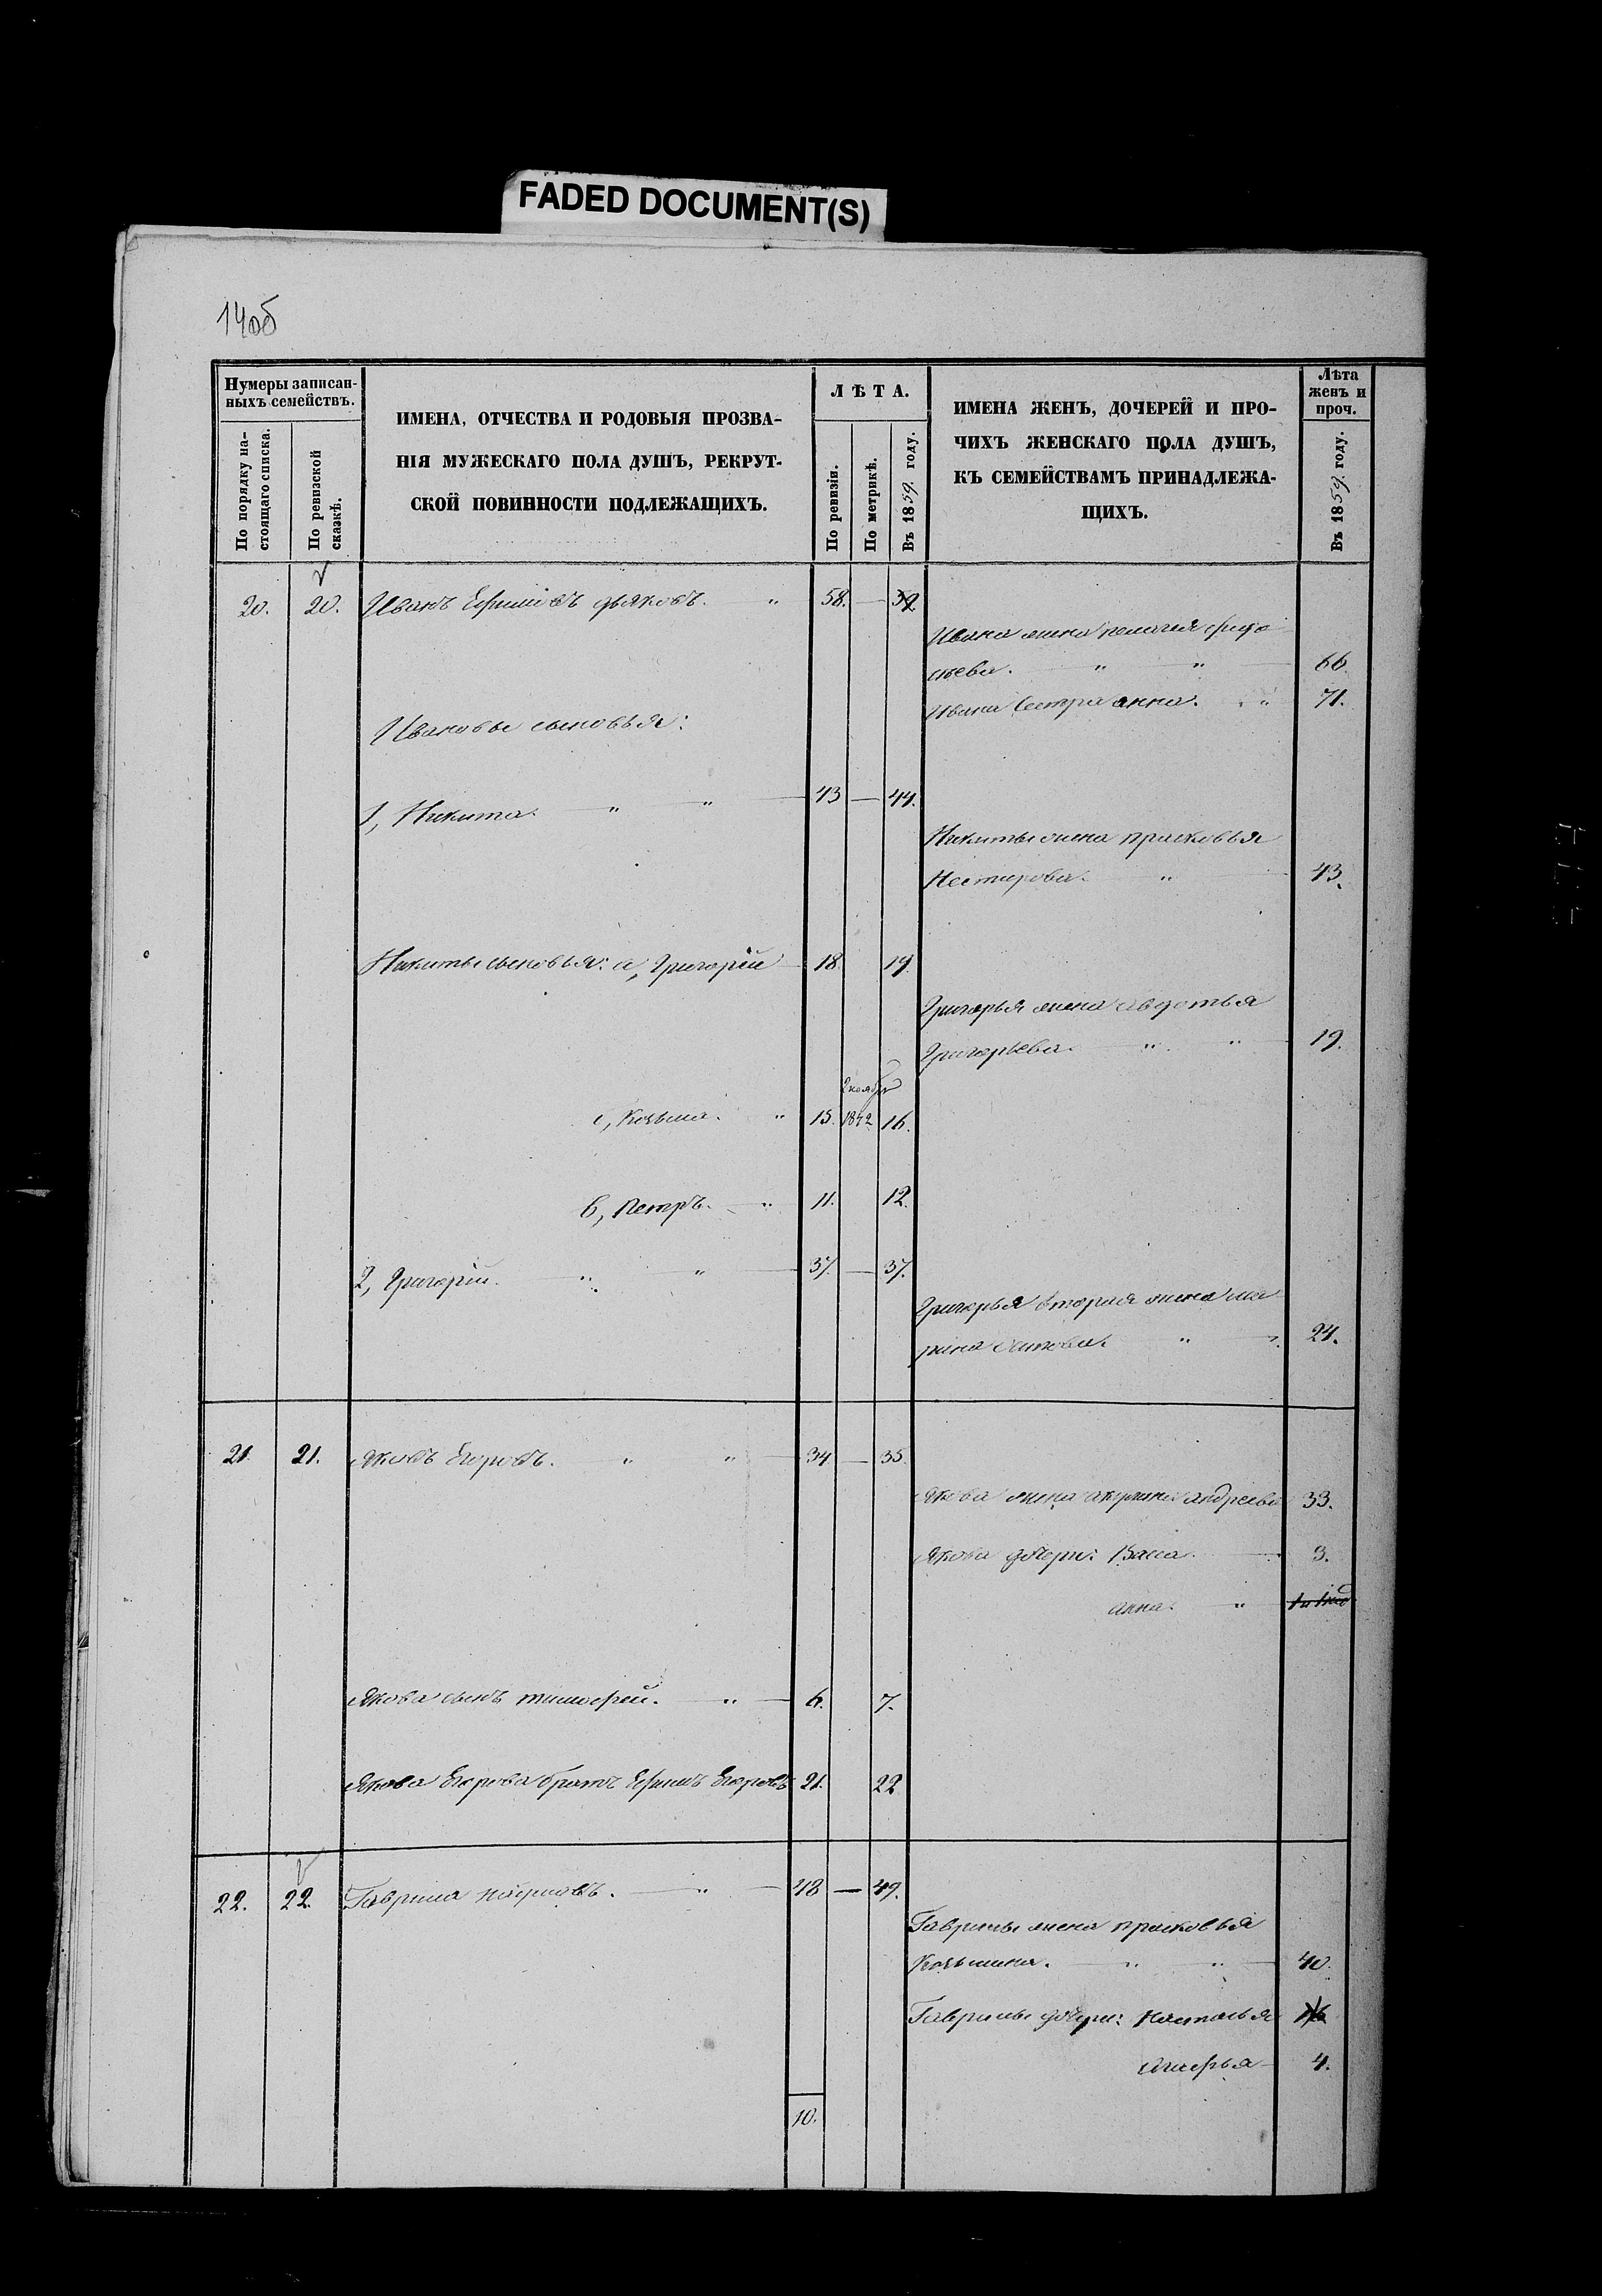 FADED DOCUMENT(S)
14об
Нумеры записан-
ныхъ семействъ.
По порядку на-
стоящаго списка.
По ревизской
сказкѣ.
ИМЕНА, ОТЧЕСТВА И РОДОВЫЯ ПРОЗВА-
НІЯ МУЖЕСКАГО ПОЛА ДУШЪ, РЕКРУТ-
СКОЙ ПОВИННОСТИ ПОДЛЕЖАЩИХЪ.
ЛѢТА.
По ревизіи.
По метрикѣ.
Въ 1859. году.
ИМЕНА ЖЕНЪ, ДОЧЕРЕЙ И ПРО-
ЧИХЪ ЖЕНСКАГО ПОЛА ДУШЪ,
КЪ СЕМЕЙСТВАМЪ ПРИНАДЛЕЖА-
ЩИХЪ.
Лѣта
женъ и
проч.
Въ 1859. году.
20. 20. Иванъ Ефимовъ дьяковъ. " 58. — 59.
Ивана жена пелагея
" " 66.
Ивана Сестра анна. " 71.
Ивановы сыновья:
1, Никита. " " 43 — 44.
Никиты жена прасковья
Нестирова. " 43.
Никиты сыновья: а, Григорій 18. 19.
Григорья жена авдотья
Григорьева. " " 19.
Козьма. " 15. 2 ноября 1842 16.
в, Петръ. " 11. 12.
2, Григорій. " " 37. — 37.
Григорья вторая жена ма
рина " 24.
21. 21. Яковъ Егоровъ. " " 34 — 35.
Якова жена акулина андреева 33.
Якова дочери: Васса. 3.
анна. "
Якова сынъ тимофей. " 6. 7.
Якова Егорова братъ Ефимъ Егоровъ 21. 22
22. 22. Гаврила " 48 — 49.
Гаврилы жена прасковья
Козьмина. " " 40.
Гаврилы дочери: Настасья 16
4.
10.